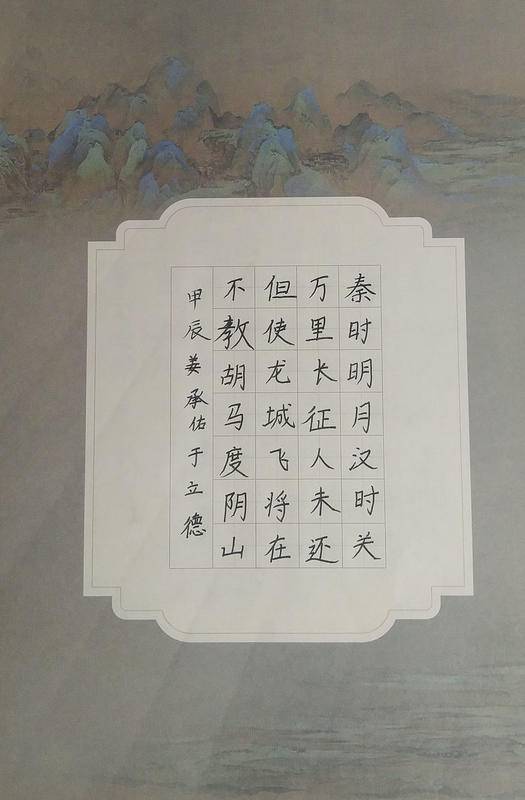 秦时明月汉时关
万里长征人未还
但使龙城飞将在
不教胡马度阴山
甲辰姜承佑于立德